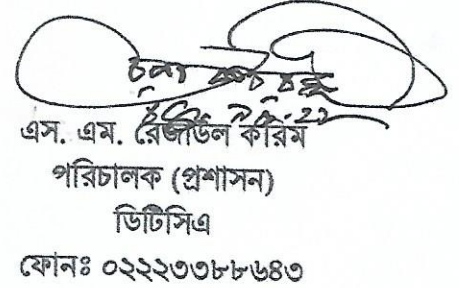 এস. এম. রেজাউল করিম
পরিচালক (প্রশাসন)
ডিটিসিএ
ফোনঃ ০২২২৩৩৮৮৬৪৩